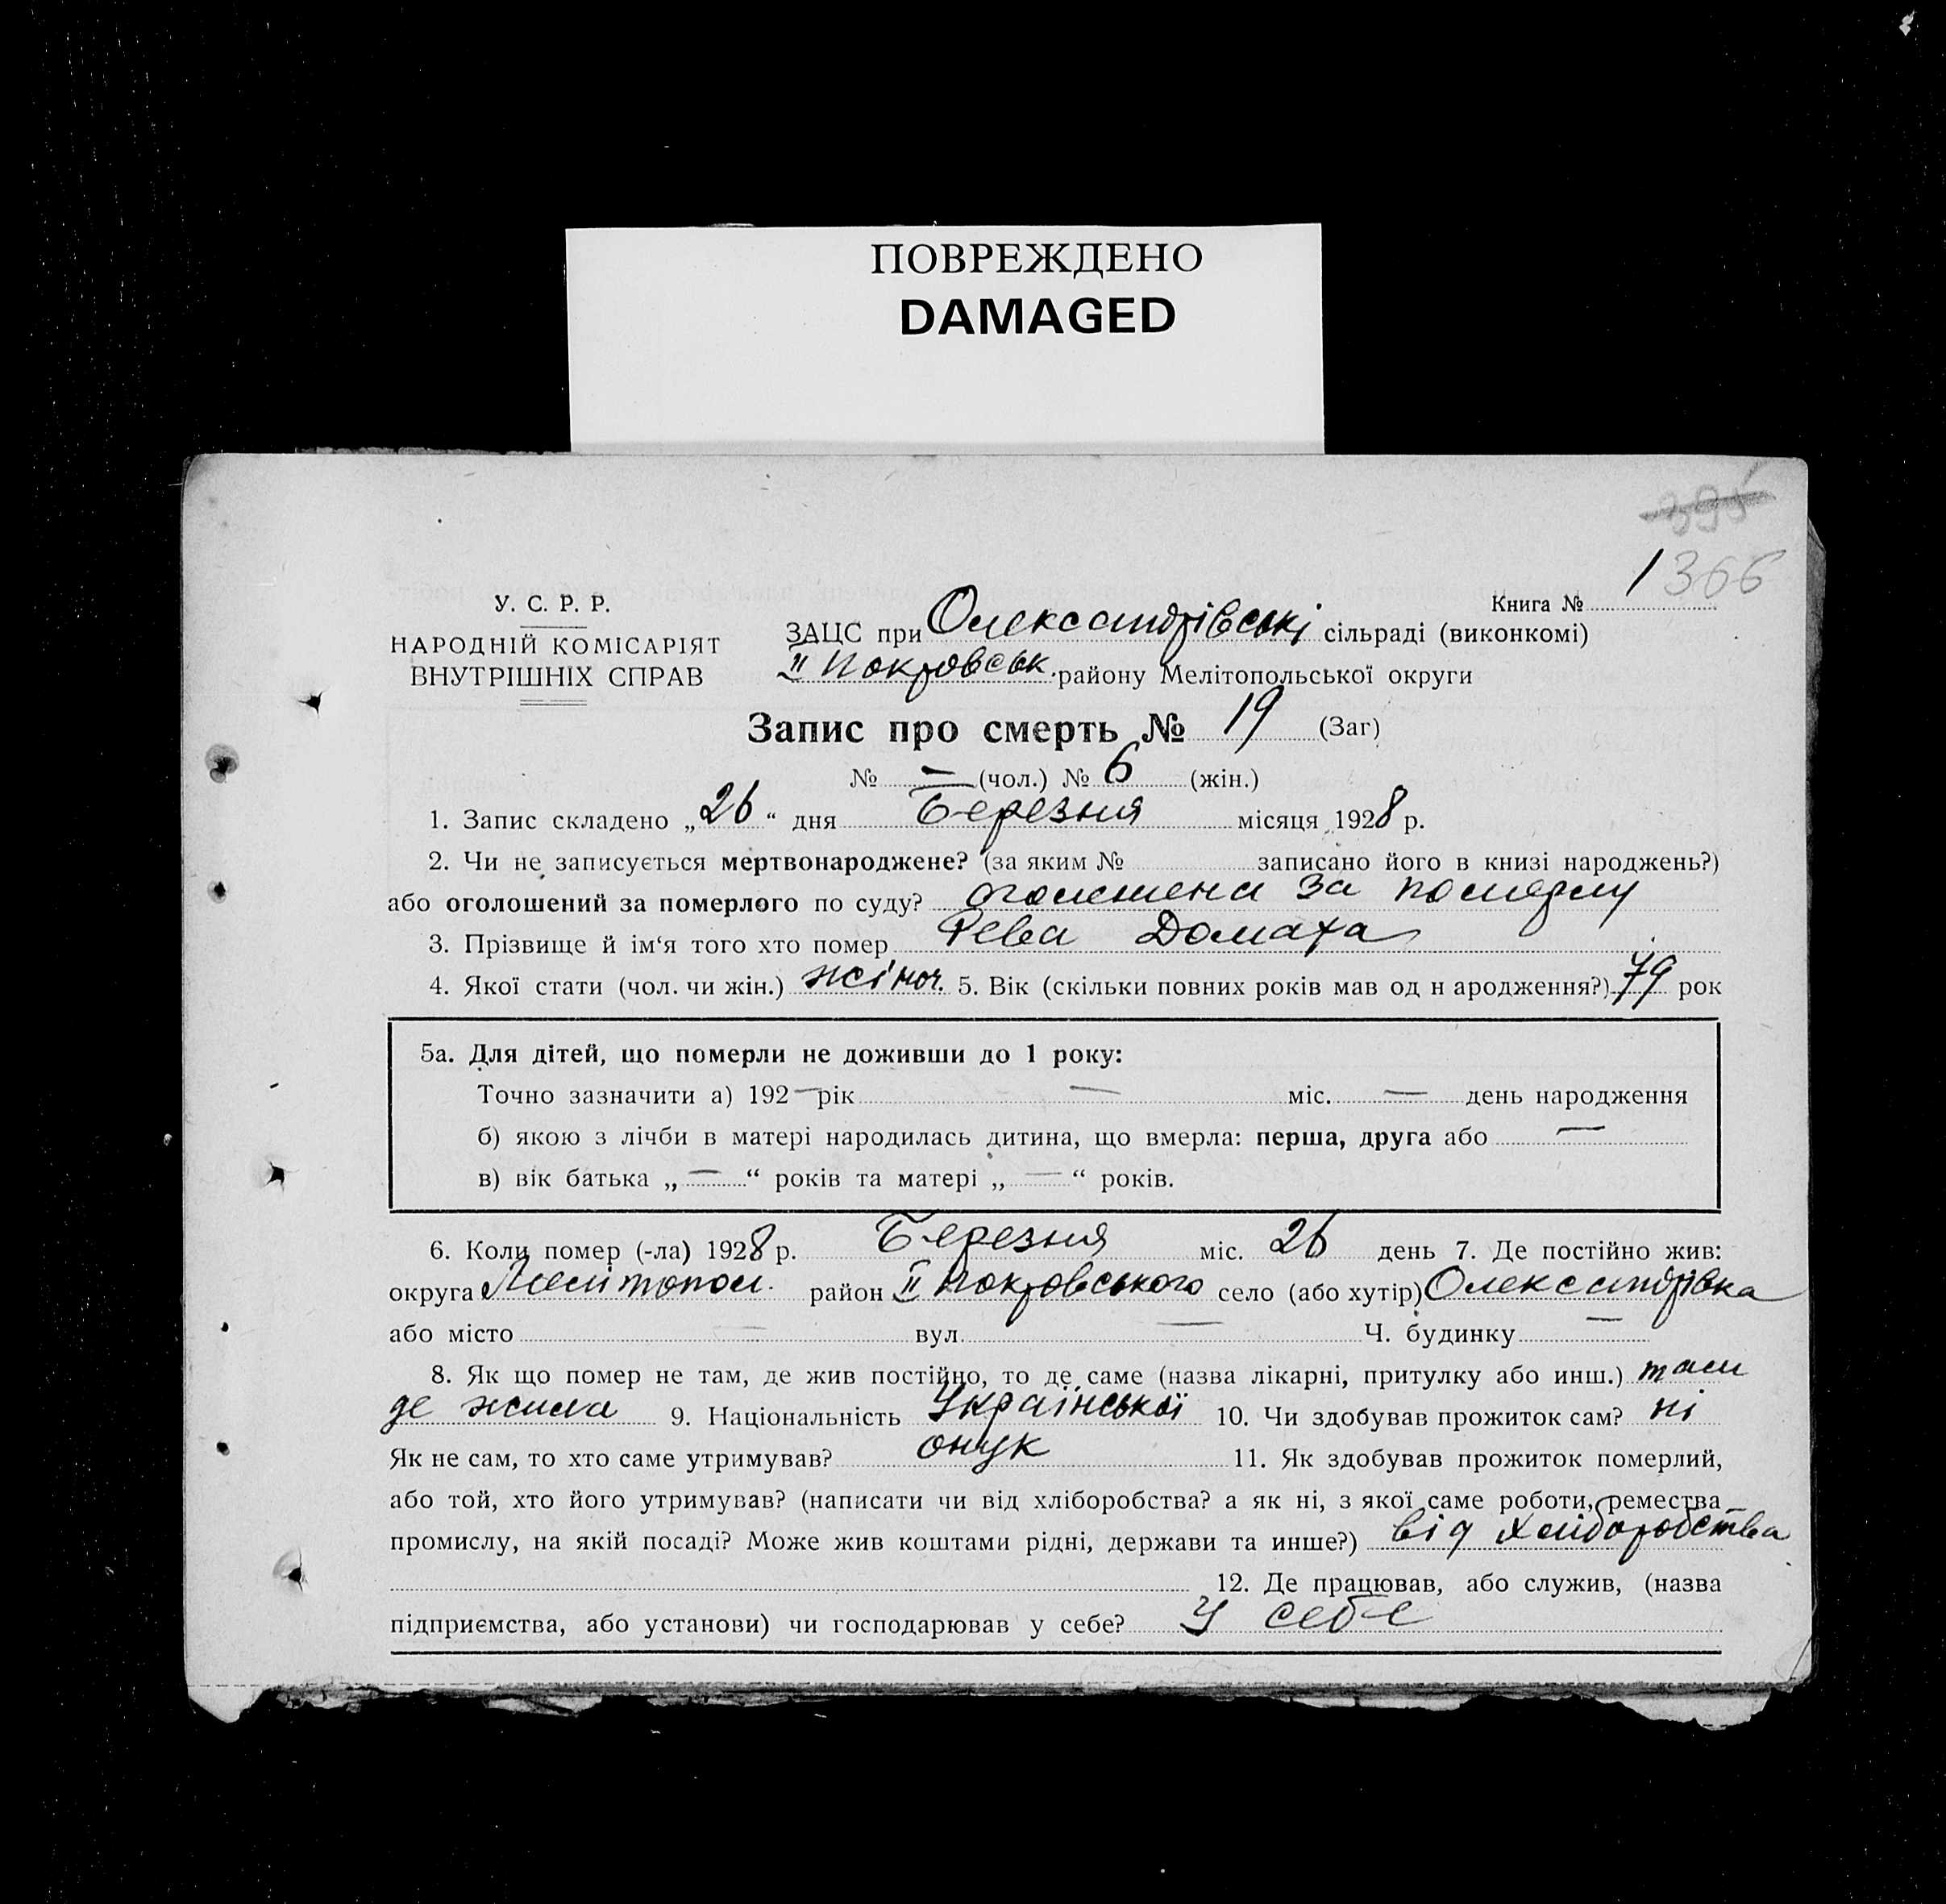 ПОВРЕЖДЕНО
DAMAGED
395
1366
У. С. Р. Р.
НАРОДНІЙ КОМІСАРІЯТ
ВНУТРІШНІХ СПРАВ
Книга №
ЗАЦС при Олександрівські сільраді (виконкомі)
II Покровськ. району Мелітопольської округи
Запис про смерть № 19 (Заг)
№ — (чол.) № 6 (жін.)
1. Запис складено „26“ дня Березня місяця 1928 р.
2. Чи не записується мертвонароджене? (за яким № записано його в книзі народжень?)
або оголошений за померлого по суду? оголошена за померлу
3. Прізвище й ім‘я того хто помер Рева Домаха
4. Якої стати (чол. чи жін.) жіноч. 5. Вік (скільки повних років мав од н ародження?) 79 рок
5а. Для дітей, що померли не доживши до 1 року:
Точно зазначити а) 192— рік — міс. — день народження
б) якою з лічби в матері народилась дитина, що вмерла: перша, друга або —
в) вік батька „—“ років та матері „—“ років.
6. Коли помер (-ла) 1928 р. Березня міс. 26 день 7. Де постійно жив:
округа Мелітопол. район II Покровського село (або хутір) Олександрівка
або місто — вул. — Ч. будинку —
8. Як що помер не там, де жив постійно, то де саме (назва лікарні, притулку або инш.) там
де жила 9. Національність Української 10. Чи здобував прожиток сам? ні
Як не сам, то хто саме утримував? онук 11. Як здобував прожиток померлий,
або той, хто його утримував? (написати чи від хліборобства? а як ні, з якої саме роботи, ремества
промислу, на якій посаді? Може жив коштами рідні, держави та инше?) від хліборобства
12. Де працював, або служив, (назва
підприємства, або установи) чи господарював у себе? У себе